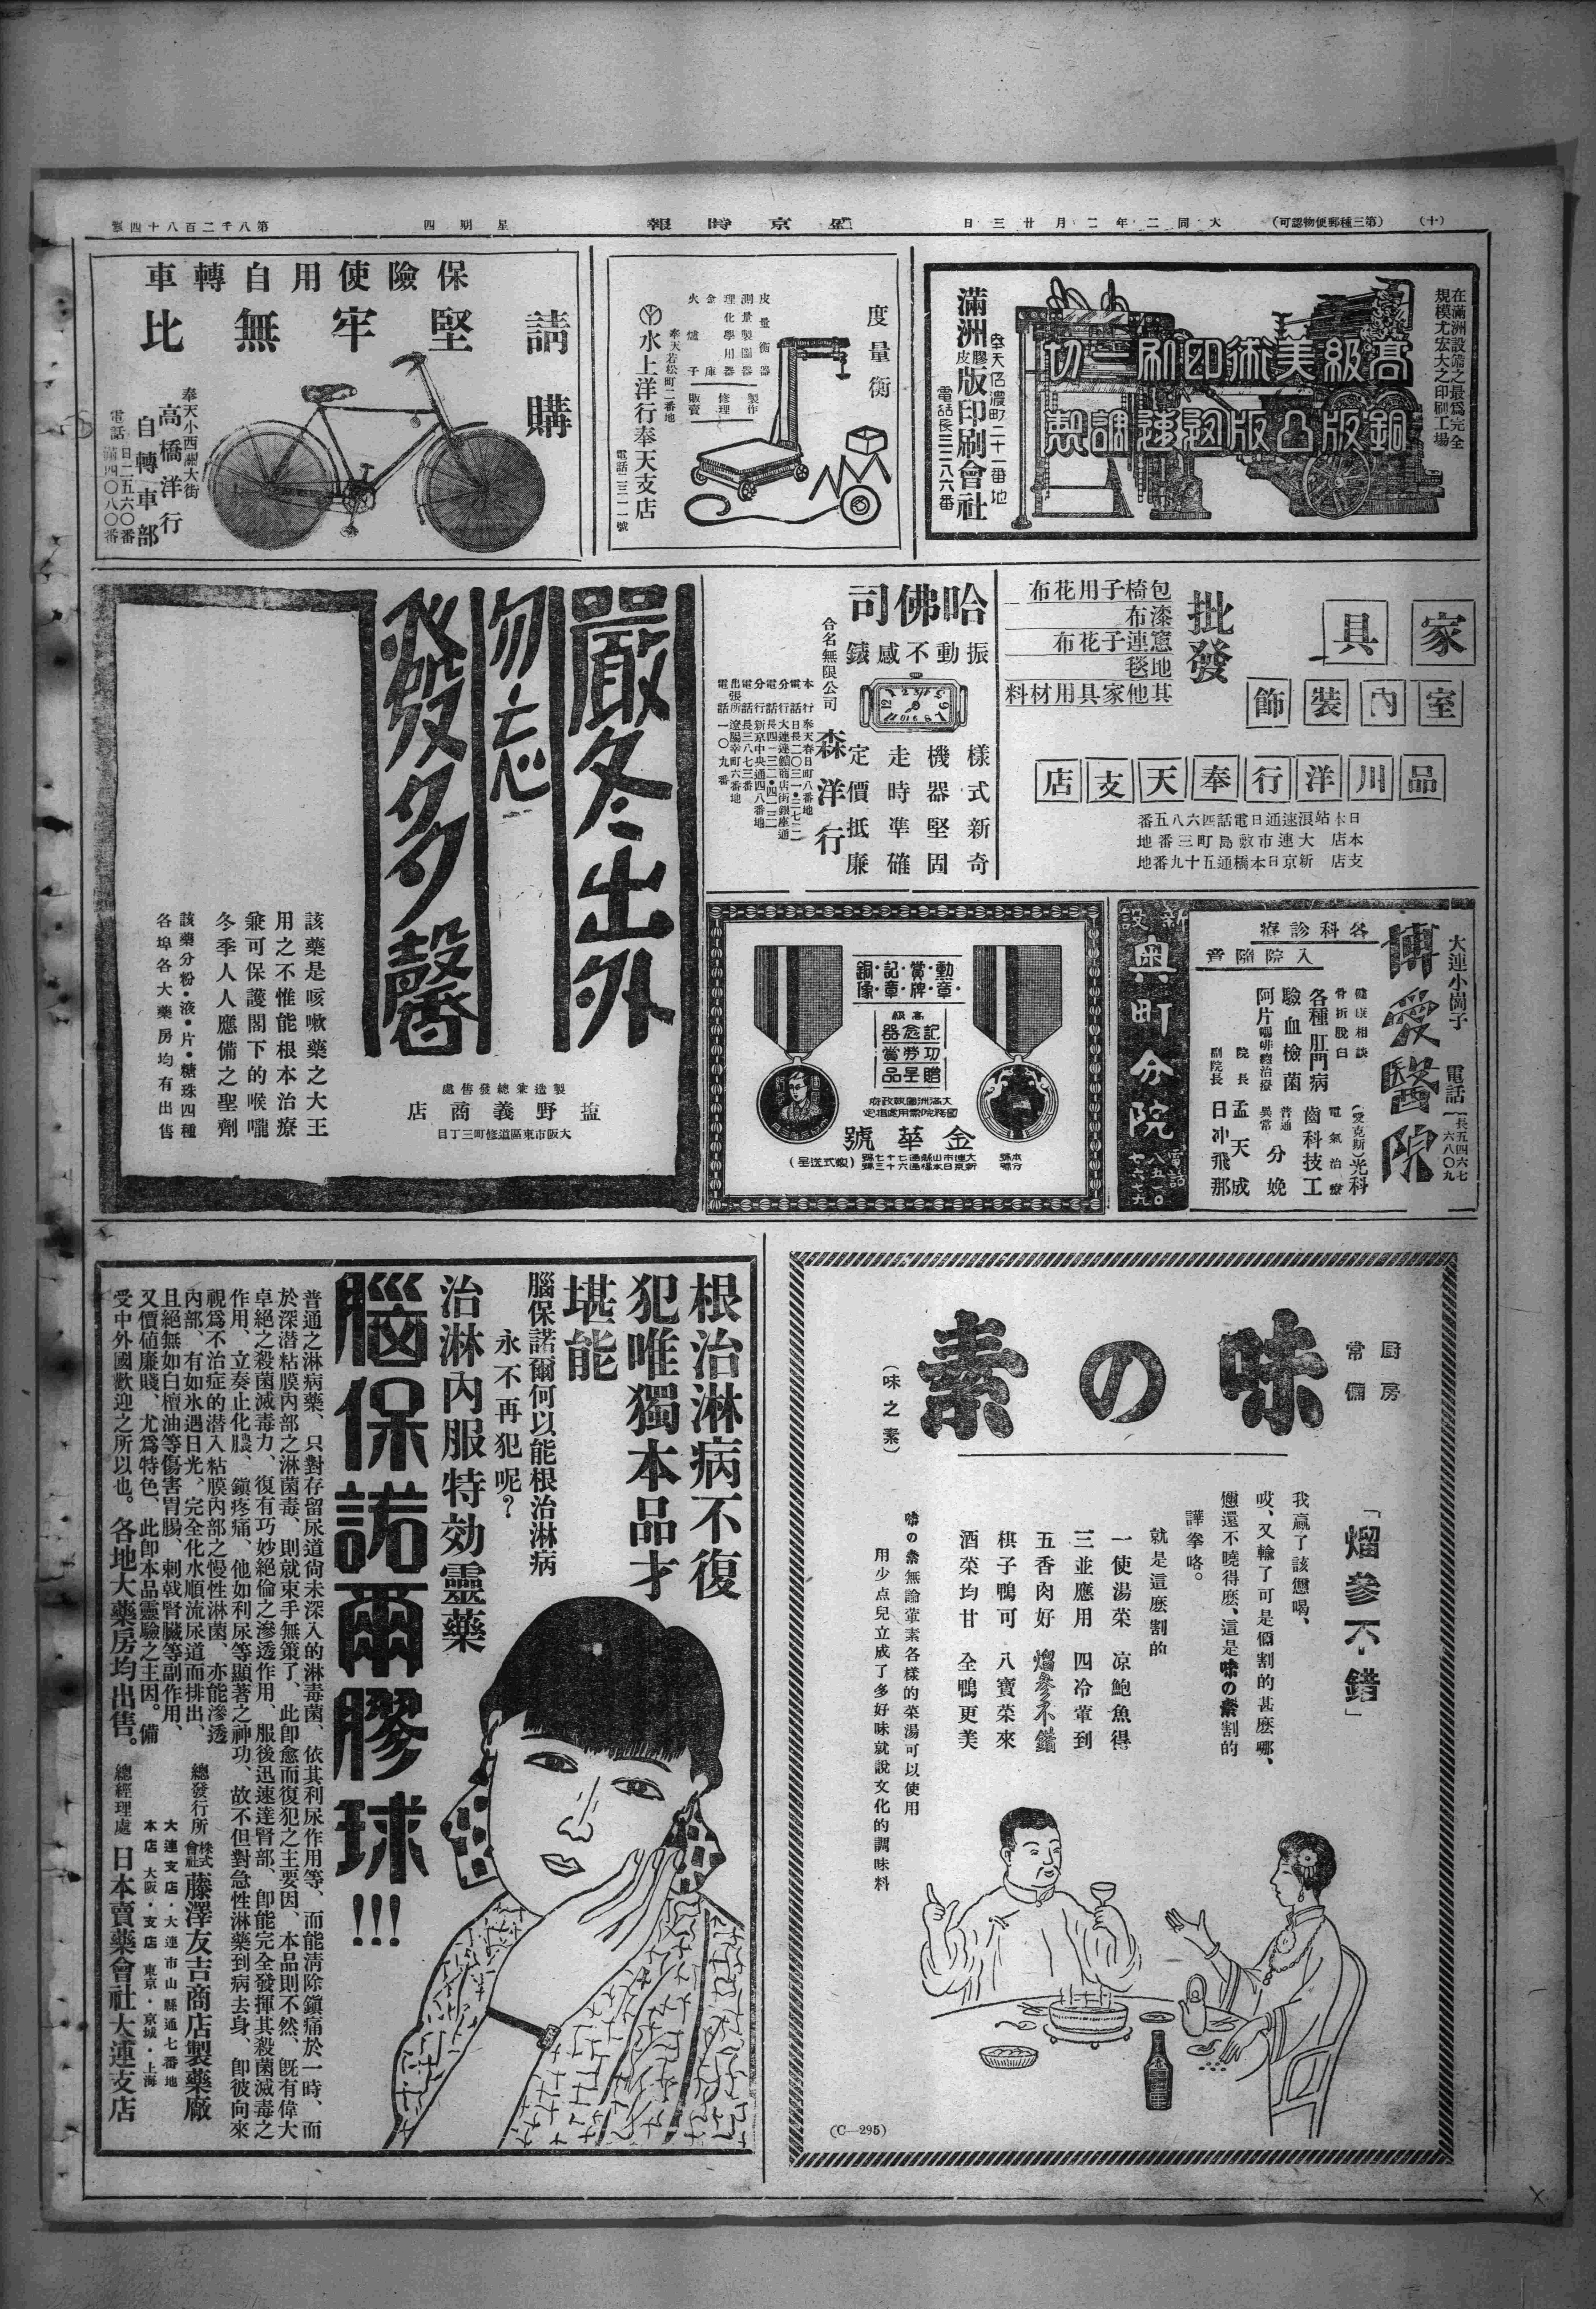 (十)
(第三種郵便物認可)
大同二年二月廿三日
盛京時報
星期四
第八千二百八十四號
在滿洲設備之最爲完全
規模尤宏大之印刷工場
高級美術印刷一切
銅版凸版迅速調製
奉天信濃町二十一番地
滿洲膠皮版印刷會社
電話長三三八六番
度量衡
皮量衡器
測量製圖器
理化學用器
金庫
火爐子
製作
修理
販賣
奉天若松町二番地
水上洋行奉天支店
電話二三一一號
保險使用自轉車
請購
堅牢無比
奉天小西關大街
高橋洋行
自轉車部
電話
日二五六〇番
滿四〇八〇番
家具
室內裝飾
批發
包椅子用花布
漆布
窻連子花布
地毯
其他家具用材料
品川洋行奉天支店
日本站浪速通日電話四六八五番
本店 大連市敷島町三番地
支店 新京日本橋通五十九番地
哈佛司
振動不感錶
樣式新奇
機器堅固
走時準確
定價抵廉
合名無限公司
森洋行
本行 奉天春日町八番地
電話 日長二〇三一・二七二二
分行 大連連鎖商店街銀座通
電話 長四一三二・四一二二
分行 新京中央通四八番地
電話 長三八七三番
出張所 遼陽幸町六番地
電話 一〇九番
嚴冬出外
勿忘
發多馨
該藥是咳嗽藥之大王
用之不惟能根本治療
兼可保護閣下的喉嚨
冬季人人應備之聖劑
該藥分粉・液・片・糖珠四種
各埠各大藥房均有出售
製造兼總發售處
塩野義商店
大阪市東區道修町三丁目
大連小崗子
博愛醫院
電話
長五四六七
六八〇九
各科診療
入院隨意
健康相談
骨折脫臼
各種肛門病
驗血檢菌
阿片嗎啡癮治療
(愛克斯)光科
電氣治療
齒科技工
普通
異常
分娩
院長 孟天成
副院長 日冲飛那
新設
奧町分院
電話
八五一〇
七六七九
勳章・賞牌・記章・銅像・
高級
記念器
功勞賞
贈呈品
大滿洲國執政府
國務院需用處指定
金華號
本號 大連市山縣通七十七號
分號 新京日本橋通六十三號
(報式送呈)
厨房
常備
味の素
(味之素)
「熘參不錯」
我贏了該您喝、
哎、又輸了可是個割的甚麽哪、
您還不曉得麽、這是味の素割的
譁拳咯。
就是這麽割的
一使湯菜 凉鮑魚得
三並應用 四冷葷到
五香肉好 熘參不錯
棋子鴨可 八寶菜來
酒菜均甘 全鴨更美
味の素無論葷素各樣的菜湯可以使用
用少点兒立成了多好味就說文化的調味料
(C—295)
根治淋病不復
犯唯獨本品才
堪能
腦保諾爾何以能根治淋病
永不再犯呢?
治淋內服特効靈藥
腦保諾爾膠球!!!
普通之淋病藥、只對存留尿道尙未深入的淋毒菌、依其利尿作用等、而能淸除鎭痛於一時、而
於深潜粘膜內部之淋菌毒、則就束手無策了、此卽愈而復犯之主要因、本品則不然、既有偉大
卓絕之殺菌滅毒力、復有巧妙絕倫之滲透作用、服後迅速達腎部、卽能完全發揮其殺菌滅毒之
作用、立奏止化膿、鎭疼痛、他如利尿等顯著之神功、故不但對急性淋藥到病去身、卽彼向來
視爲不治症的潜入粘膜內部之慢性淋菌、亦能滲透
內部、有如氷遇日光、完全化水順流尿道而排出、
且絕無如白檀油等傷害胃腸、刺戟腎臟等副作用、
又價値廉賤、尤爲特色、此卽本品靈驗之主因。備
受中外國歡迎之所以也。各地大藥房均出售。
總發行所 株式會社藤澤友吉商店製藥廠
大連支店・大連市山縣通七番地
本店 大阪・支店 東京・京城・上海
總經理處 日本賣藥會社大連支店